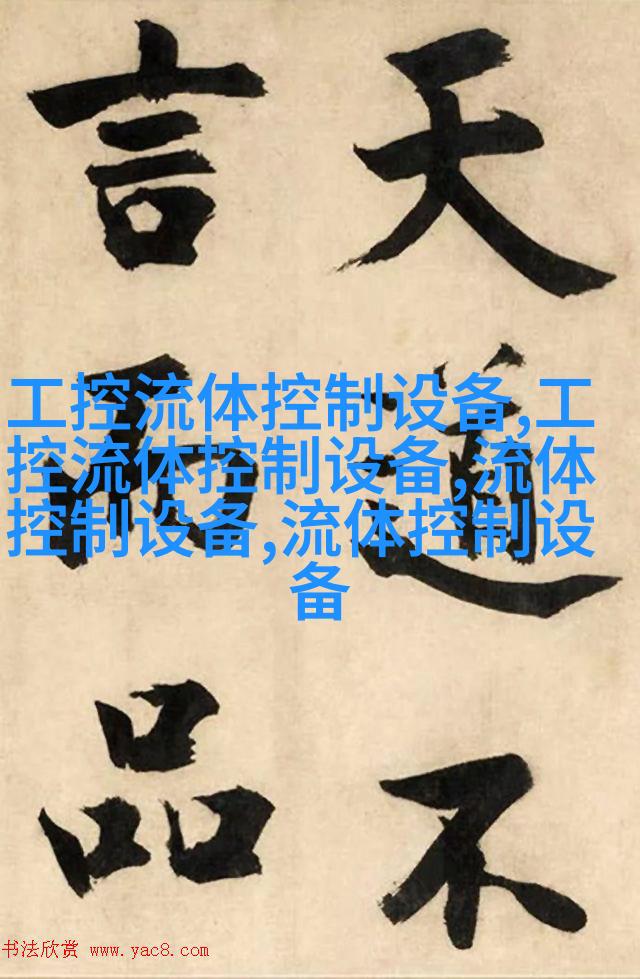 天道不
言而品
工控流体控制设备,工
控流体控制设备,流体
控制设备,流体控制设
备
书法欣赏 www.yac8.com